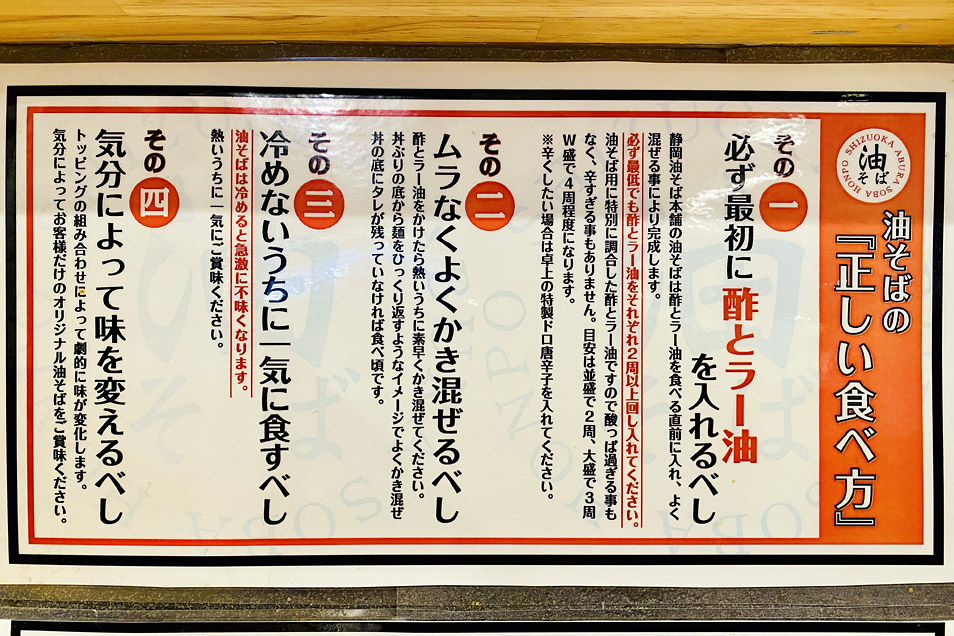 SHIZUOKA ABURA SOBA HONPO
油そば
油そばの
『正しい食べ方』
その一
必ず最初に酢とラー油
を入れるべし
静岡油そば本舗の油そばは酢とラー油を食べる直前に入れ、よく
混ぜる事により完成します。
必ず最低でも酢とラー油をそれぞれ2周以上回し入れてください。
油そば用に特別に調合した酢とラー油ですので酸っぱ過ぎる事も
なく、辛すぎる事もありません。目安は並盛で2周、大盛で3周
W盛で4周程度になります。
※辛くしたい場合は卓上の特製ドロ唐辛子を入れてください。
その二
ムラなくよくかき混ぜるべし
酢とラー油をかけたら熱いうちに素早くかき混ぜてください。
丼ぶりの底から麺をひっくり返すようなイメージでよくかき混ぜ
丼の底にタレが残っていなければ食べ頃です。
その三
冷めないうちに一気に食すべし
油そばは冷めると急激に不味くなります。
熱いうちに一気にご賞味ください。
その四
気分によって味を変えるべし
トッピングの組み合わせによって劇的に味が変化します。
気分によってお客様だけのオリジナル油そばをご賞味ください。